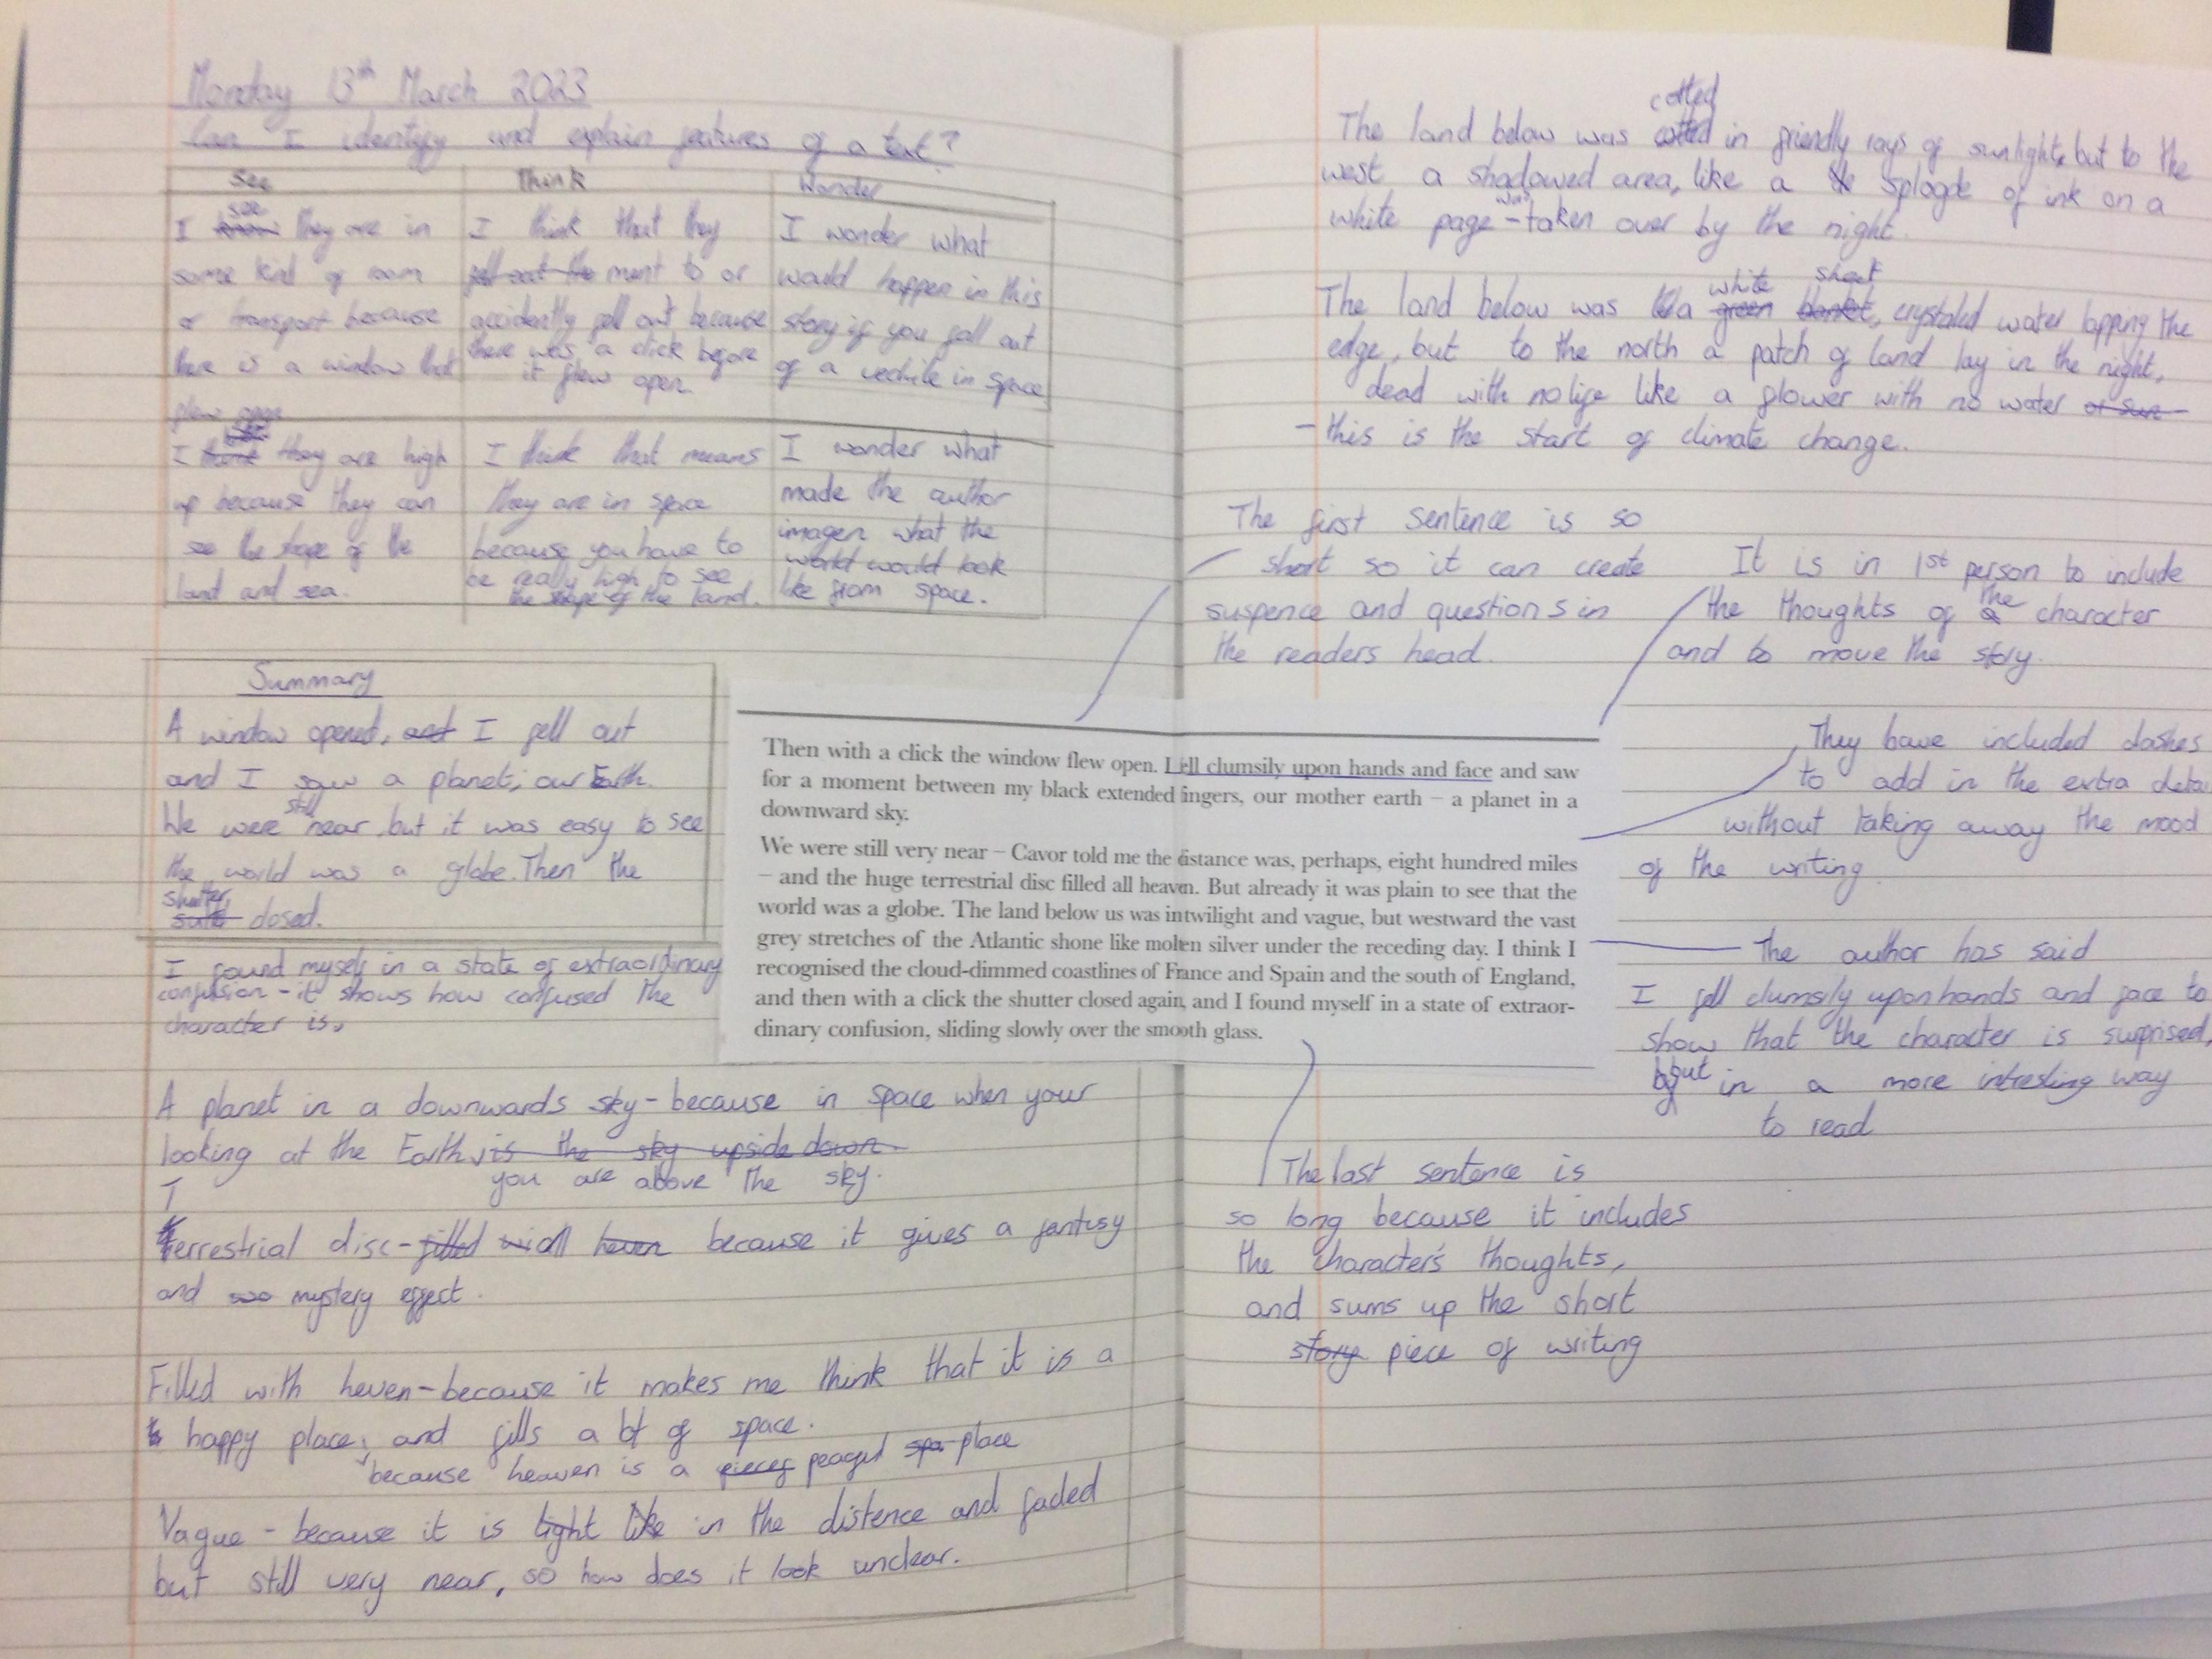 Monday 13th March 2023
Can I identify and explain features of a text?
See
I know see they are in
some kind of room
or transport because
there is a window that
flew open
Think
I think that they
fell out the ment to or
accidently fell out because
there was a click before
it flew open
Wonder
I wonder what
would happen in this
story if you fall out
of a vechile in space
I think they are high
up because they can
see the shape of the
land and sea.
I think that means
they are in space
because you have to
be really high to see
the shape of the land.
I wonder what
made the author
imagen what the
world would look
like from space.
Summary
A window opened, and I fell out
and I saw a planet; our Earth.
We were still near, but it was easy to see
the world was a globe. Then the
shutter closed.
I found myself in a state of extraordinary
confusion - it shows how confused the
character is.
Then with a click the window flew open. I fell clumsily upon hands and face and saw
for a moment between my black extended fingers, our mother earth – a planet in a
downward sky.
We were still very near – Cavor told me the distance was, perhaps, eight hundred miles
– and the huge terrestrial disc filled all heaven. But already it was plain to see that the
world was a globe. The land below us was in twilight and vague, but westward the vast
grey stretches of the Atlantic shone like molten silver under the receding day. I think I
recognised the cloud-dimmed coastlines of France and Spain and the south of England,
and then with a click the shutter closed again, and I found myself in a state of extraor-
dinary confusion, sliding slowly over the smooth glass.
A planet in a downwards sky - because in space when your
looking at the Earth, is the sky upside down.
you are above the sky.
Terrestrial disc - filled heven because it gives a fantisy
and mystery effect.
Filled with heven - because it makes me think that it is a
happy place, and fills a bt of space.
because heaven is a peaceful place
Vague - because it is light like in the distence and faded
but still very near, so how does it look unclear.
cotted
The land below was cotted in friendly rays of sunlight, but to the
west a shadowed area, like a splogde of ink on a
white page - was taken over by the night.
The land below was a green white blanket sheet, crystaled water lapping the
edge, but to the north a patch of land lay in the night,
dead with no life like a flower with no water or sun
- this is the start of climate change.
The first sentence is so
short so it can create
suspence and questions in
the readers head.
It is in 1st person to include
the thoughts of a the character
and to move the story.
They have included dashes
to add in the extra
without taking away the mood
of the writing.
The author has said
I fell clumsily upon hands and face to
show that the character is surprised,
but in a more intresting way
to read
The last sentence is
so long because it includes
the character's thoughts,
and sums up the short
story piece of writing